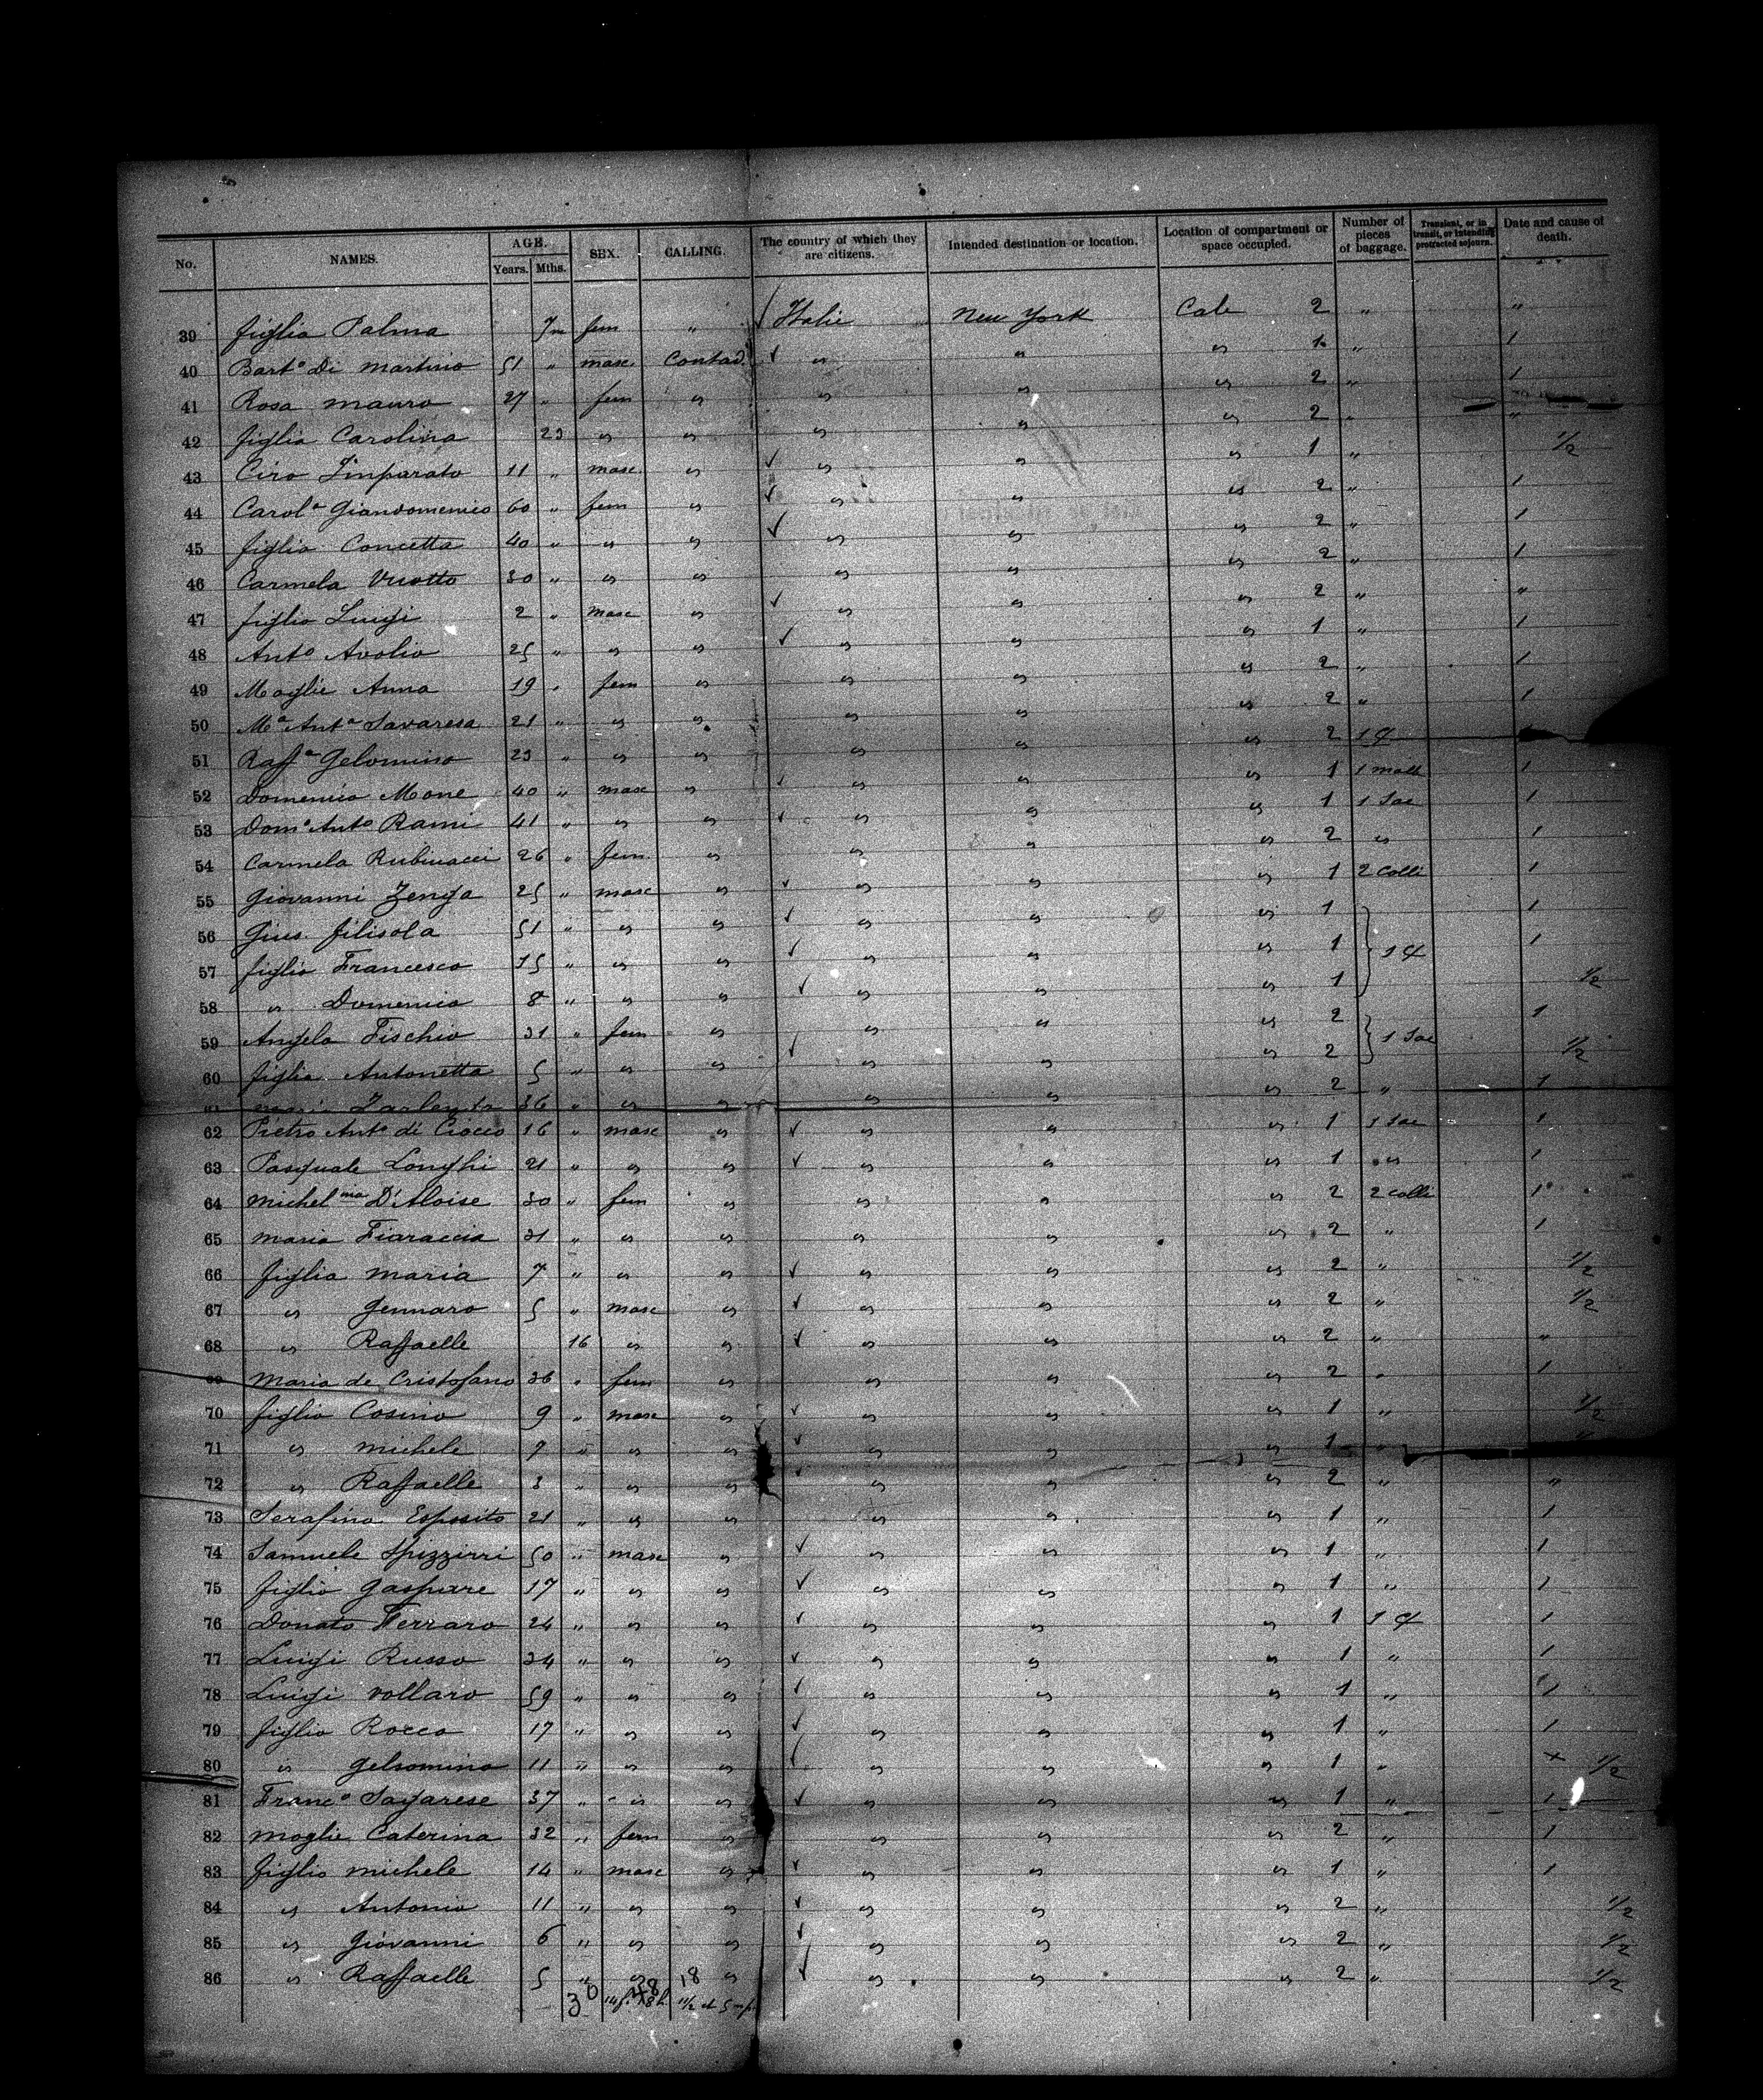 No. NAMES. AGE. Years. Mths. SEX. CALLING. The country of which they are citizens. Intended destination or location. Location of compartment or space occupied. Number of pieces of baggage. Transient, or in transit, or intending protracted sojourn. Date and cause of death.
39 figlia Palma 7m fem " Italie New York Cale 2 " "
40 Bart° Di Martino 51 " masc Contad. " " " 1 " 1
41 Rosa Mauro 27 " fem " " " " 2 " 1
42 figlia Carolina 23 " " " " " 2 " "
43 Ciro Imparato 11 " masc. " " " " 1 " 1/2
44 Carolª Giandomenico 60 " fem " " " " 2 " 1
45 figlia Concetta 40 " " " " " " 2 " 1
46 Carmela 30 " " " " " " 2 " 1
47 figlio Luigi 2 " masc " " " " 2 " "
48 Ant° Avolio 25 " " " " " " 1 " 1
49 Moglie Anna 19 " fem " " " " 2 " 1
50 Mª Antª Savaresa 21 " " " " " " 2 " 1
51 Raffª Gelomino 23 " " " " " " 2 1 1
52 Domenico Mone 40 " masc " " " " 1 1 1
53 Dom° Ant° Rami 41 " " " " " " 1 1 Sac 1
54 Carmela Rubinacci 26 " fem. " " " " 2 " 1
55 Giovanni Zenga 25 " masc " " " " 1 2 Colli 1
56 Gius. filisola 51 " " " " " " 1 1
57 figlio Francesco 15 " " " " " " 1 1 1
58 " Domenico 8 " " " " " " 1 1/2
59 Angela Fischio 31 " fem " " " " 2 1
60 figlia Antonetta 5 " " " " " " 2 1 Sac 1/2
36 " " " " " " 2 " 1
62 Pietro Ant° di Ciocco 16 " masc " " " " 1 1 Sac 1
63 Pasquale Longhi 21 " " " " " " 1 " 1
64 Michelina D'Aloise 30 " fem " " " " 2 2 colli 1
65 Maria Fiaraccia 31 " " " " " " 2 " 1
66 figlia Maria 7 " " " " " " 2 " 1/2
67 " Gennaro 5 " masc " " " " 2 " 1/2
68 " Raffaelle 16 " " " " " 2 " "
69 Maria de Cristofano 36 " fem " " " " 2 " 1
70 figlio Cosimo 9 " masc " " " " 1 " 1/2
71 " Michele 7 " " " " " " 1
72 " Raffaelle 3 " " " " " " 2 " "
73 Serafino Esposito 21 " " " " " " 1 " 1
74 Samuele Spizzirri 50 " masc " " " " 1 " 1
75 figlio Gaspare 17 " " " " " " 1 " 1
76 Donato Ferraro 24 " " " " " " 1 1 1
77 Luigi Russo 34 " " " " " " 1 " 1
78 Luigi Vollaro 59 " " " " " " 1 " 1
79 figlio Rocco 17 " " " " " " 1 " 1
80 " Gelsomino 11 " " " " " " 1 " x 1/2
81 Franc° Sagarese 37 " " " " " " 1 " 1
82 Moglie Caterina 32 " fem " " " " 2 " 1
83 figlio Michele 14 " masc " " " " 1 " 1
84 " Antonio 11 " " " " " " 2 " 1/2
85 " Giovanni 6 " " " " " " 2 " 1/2
86 " Raffaelle 5 " " " " " " 2 " 1/2
30 18